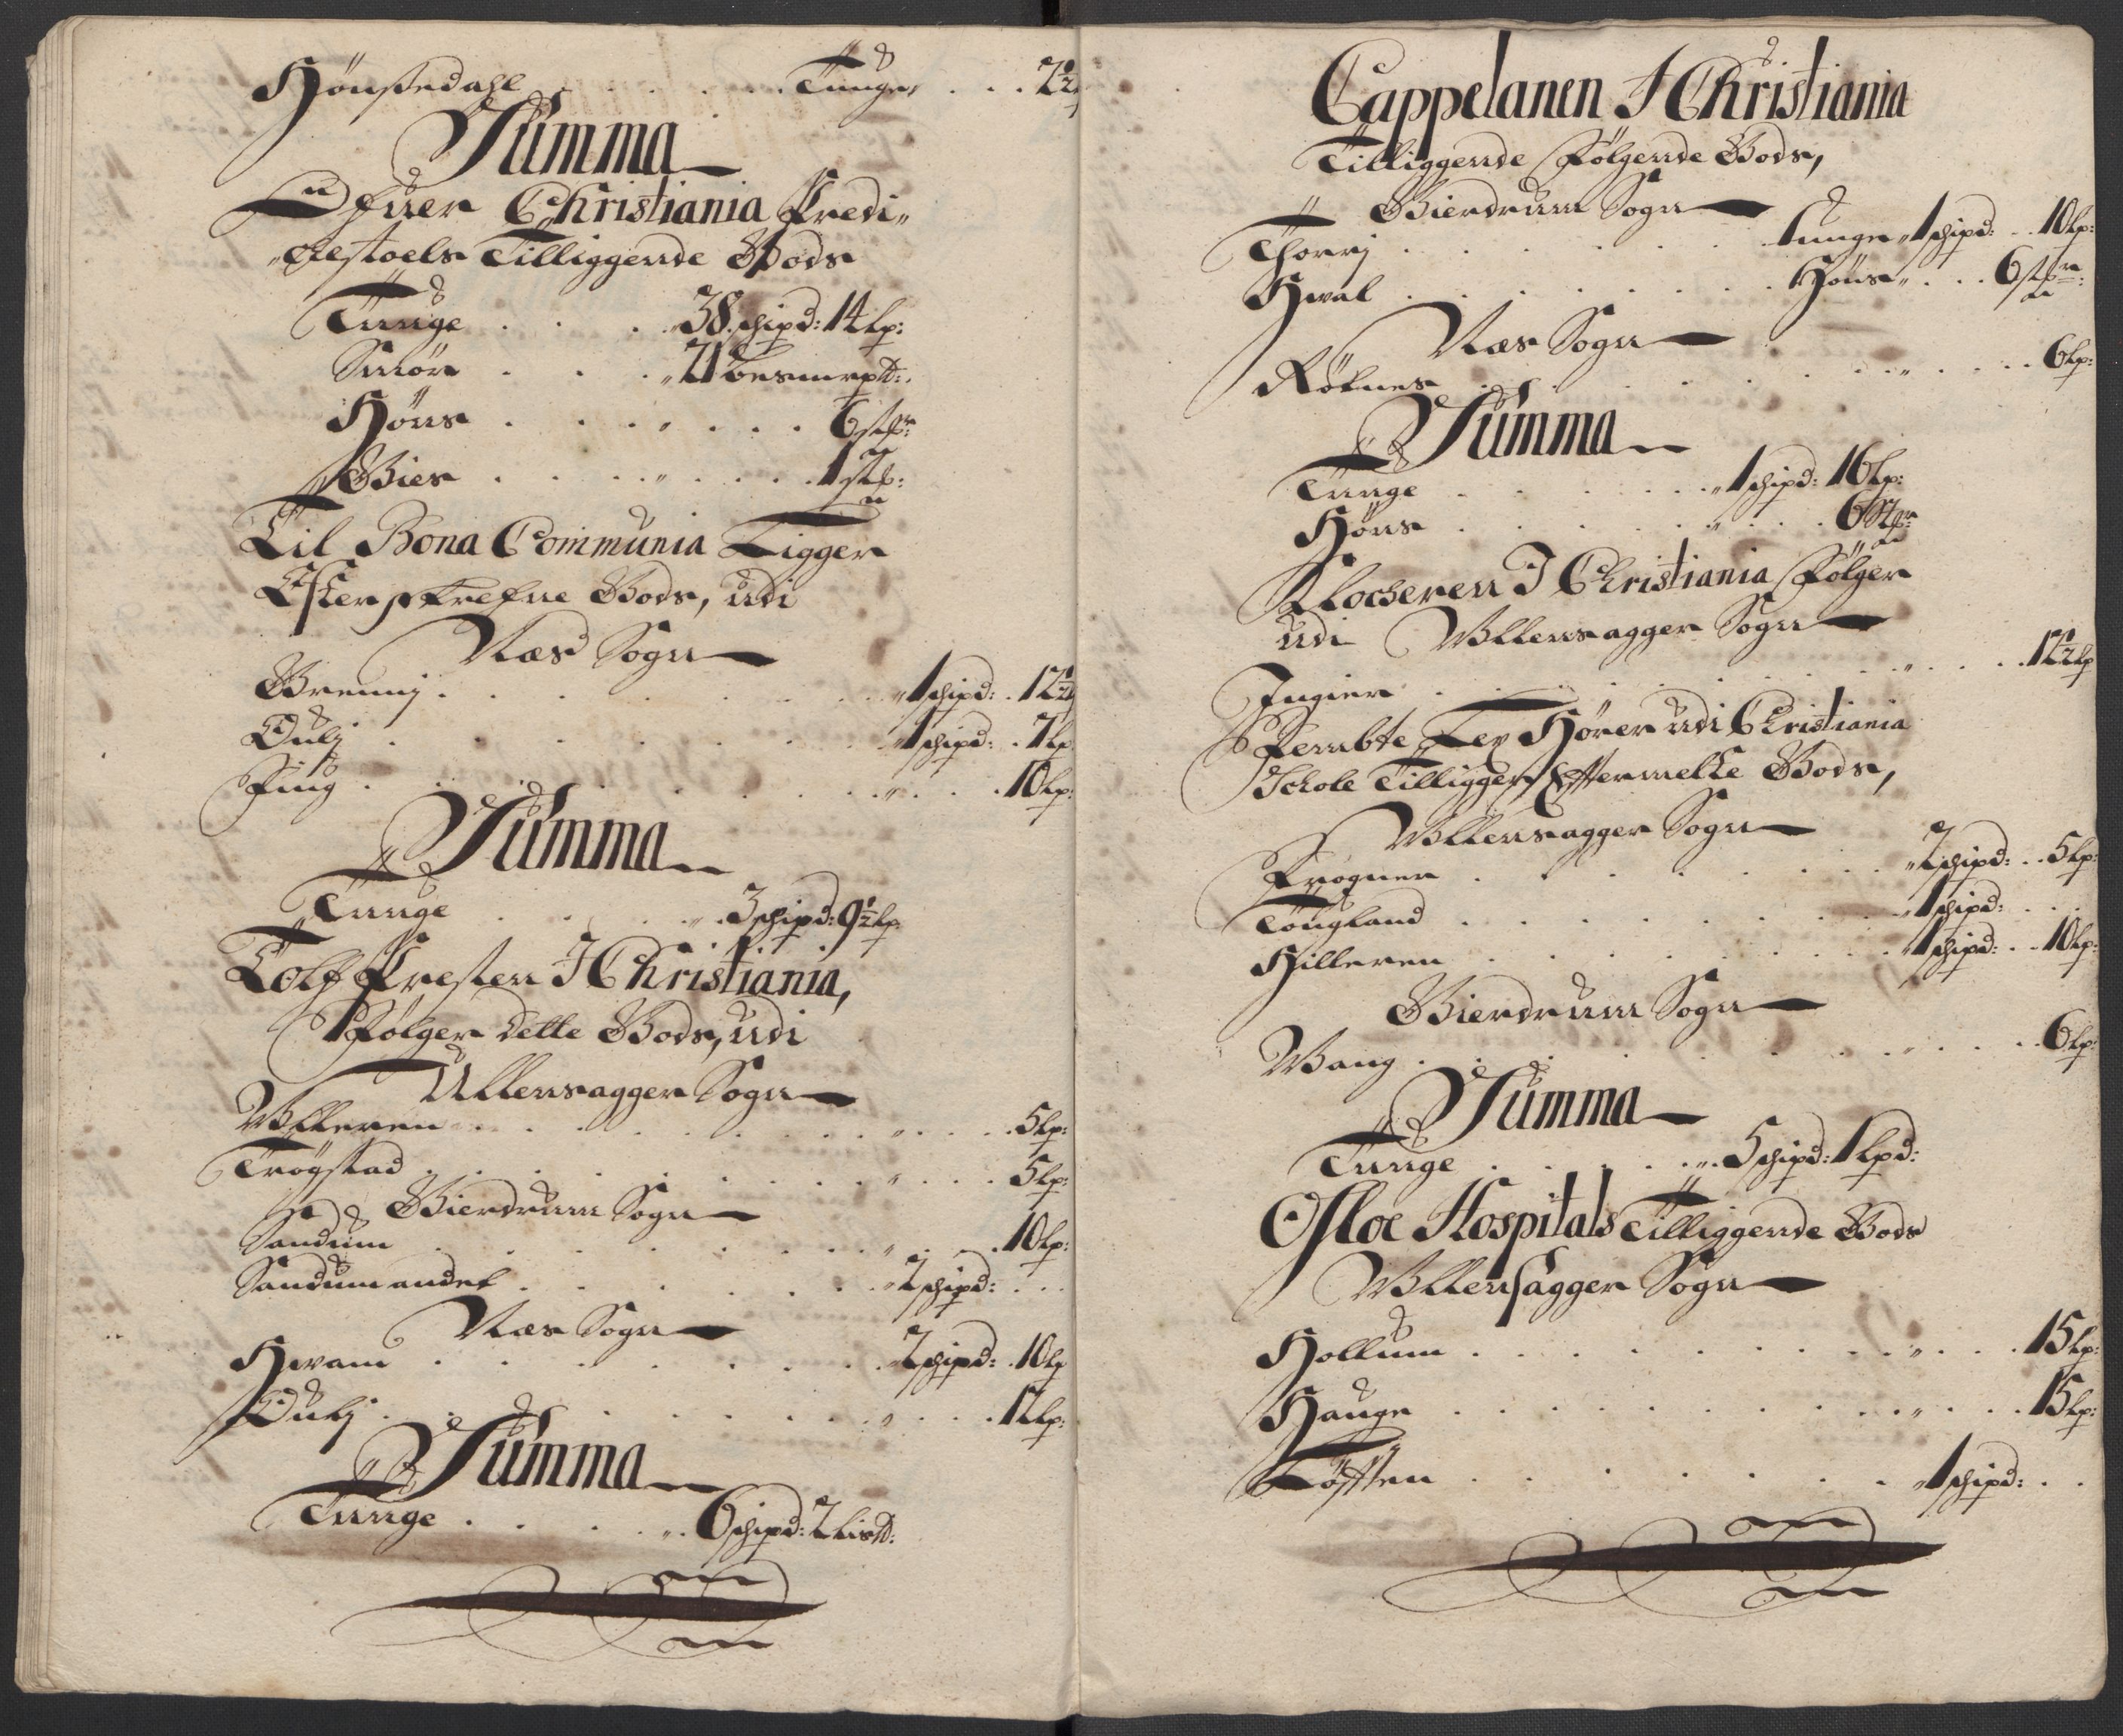 Hönsedahl . . . . . Tunge . . . 2½
Summa
Ofver Christiania Predi„
„chestoels Tilliggende Gods
Tunge . . . „38 schipd: 14 Lp:
Smör . . . „21 besmerpd:
Höns . . . „ . . . 6 stkr:
Bier . . . „ . . . 1 stk:
Til Bona Communia Ligger
Efterschrefne Gods, udi
Næs Sogn
Brenni . . . „1 schipd: . 12½
Dulj . . . „1 schipd: . 7 Lp
Fiug . . . „ . . . 10 Lp:
Summa
Tunge . . . „3 schipd: 9½ Lp:
Tolf Presten I Christiania,
Fölger dette Gods, udi
Ullensagger Sogn
Wlleren . . . „ . . . 5 Lp:
Trögstad . . . „ . . . 5 Lp:
Gierdrum Sogn
Sandum . . . „ . . . 10 Lp:
Sandum andet . . . „2 schipd: . . .
Næs Sogn
Hwam . . . „2 schipd: . 10 Lp
Dulj . . . „ . . . 17 Lp:
Summa
Tunge . . . „6 schipd: 2 Lispd:
Cappelanen I Christiania
Tilliggende Fölgende Gods,
Gierdrum Sogn
Thorrj . . . tunge „1 schipd: . . 10 Lp:
Hwal . . . Höns „ . . . 6 stkr:
Næs Sogn
Rötnes . . . „ . . . 6 Lp:
Summa
Tunge . . . „1 schipd: 16 Lp:
Höns . . . „ . . . 6 Stkr:
Klocheren I Christiania Fölger
udi Wllensagger Sogn
Ingier . . . „ . . . 12½ Lp
Femte Lex Hörer udi Christiania
Schole Tilligger Eftermelte Gods,
Wllensagger Sogn
Frogner . . . „2 schipd: . . 5 Lp:
Töugland . . . „1 schipd: . . .
Hilleren . . . „1 schipd: . . 10 Lp:
Gierdrum Sogn
Wang . . . „ . . . 6 Lp:
Summa
Tunge . . . „5 schipd: 1 Lpd:
Osloe Hospitals Tilliggende Gods
Wllensagger Sogn
Hollum . . . „ . . . 15 Lp:
Hauge . . . „ . . . 15 Lp:
Töfften . . . „1 schipd: . .